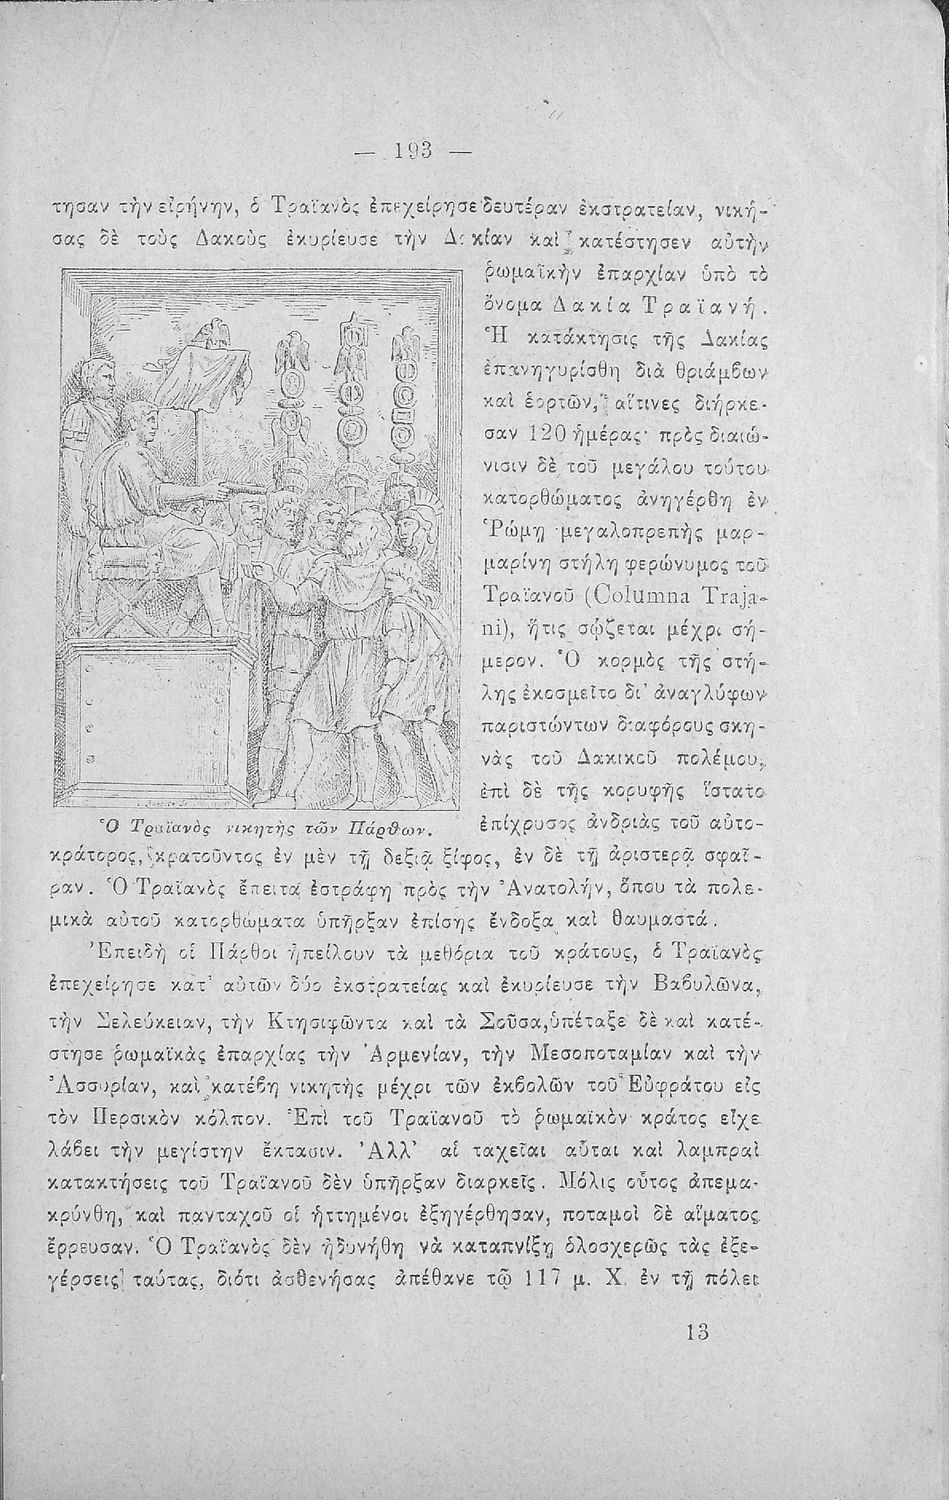 — 193 —
τησαν τὴν εἰρήνην, ὁ Τραϊανὸς ἐπεχείρησε δευτέραν ἐκστρατείαν, νική-
σας δὲ τοὺς Δακοὺς ἐκυρίευσε τὴν Δακίαν καὶ κατέστησεν αὐτὴν
ῥωμαϊκὴν ἐπαρχίαν ὑπὸ τὸ
ὄνομα Δακία Τραϊανή.
Ἡ κατάκτησις τῆς Δακίας
ἐπανηγυρίσθη διὰ θριάμβων
καὶ ἑορτῶν, αἵτινες διήρκε-
σαν 120 ἡμέρας· πρὸς διαιώ-
νισιν δὲ τοῦ μεγάλου τούτου
κατορθώματος ἀνηγέρθη ἐν
Ῥώμῃ μεγαλοπρεπὴς μαρ-
μαρίνη στήλη φερώνυμος τοῦ
Τραϊανοῦ (Columna Traja-
ni), ἥτις σῴζεται μέχρι σή-
μερον. Ὁ κορμὸς τῆς στή-
λης ἐκοσμεῖτο δι' ἀναγλύφων
παριστώντων διαφόρους σκη-
νὰς τοῦ Δακικοῦ πολέμου,
ἐπὶ δὲ τῆς κορυφῆς ἵστατο
ἐπίχρυσος ἀνδριὰς τοῦ αὐτο-
Ὁ Τραϊανὸς νικητὴς τῶν Πάρθων.
κράτορος, κρατοῦντος ἐν μὲν τῇ δεξιᾷ ξίφος, ἐν δὲ τῇ ἀριστερᾷ σφαῖ-
ραν. Ὁ Τραϊανὸς ἔπειτα ἐστράφη πρὸς τὴν Ἀνατολήν, ὅπου τὰ πολε-
μικὰ αὐτοῦ κατορθώματα ὑπῆρξαν ἐπίσης ἔνδοξα καὶ θαυμαστά.
Ἐπειδὴ οἱ Πάρθοι ἠπείλουν τὰ μεθόρια τοῦ κράτους, ὁ Τραϊανὸς
ἐπεχείρησε κατ' αὐτῶν δύο ἐκστρατείας καὶ ἐκυρίευσε τὴν Βαβυλῶνα,
τὴν Σελεύκειαν, τὴν Κτησιφῶντα καὶ τὰ Σοῦσα, ὑπέταξε δὲ καὶ κατέ-
στησε ῥωμαϊκὰς ἐπαρχίας τὴν Ἀρμενίαν, τὴν Μεσοποταμίαν καὶ τὴν
Ἀσσυρίαν, καὶ κατέβη νικητὴς μέχρι τῶν ἐκβολῶν τοῦ Εὐφράτου εἰς
τὸν Περσικὸν κόλπον. Ἐπὶ τοῦ Τραϊανοῦ τὸ ῥωμαϊκὸν κράτος εἶχε
λάβει τὴν μεγίστην ἔκτασιν. Ἀλλ' αἱ ταχεῖαι αὗται καὶ λαμπραὶ
κατακτήσεις τοῦ Τραϊανοῦ δὲν ὑπῆρξαν διαρκεῖς. Μόλις οὗτος ἀπεμα-
κρύνθη, καὶ πανταχοῦ οἱ ἡττημένοι ἐξηγέρθησαν, ποταμοὶ δὲ αἵματος
ἔρρευσαν. Ὁ Τραϊανὸς δὲν ἠδυνήθη νὰ καταπνίξῃ ὁλοσχερῶς τὰς ἐξε-
γέρσεις ταύτας, διότι ἀσθενήσας ἀπέθανε τῷ 117 μ. Χ. ἐν τῇ πόλει
13